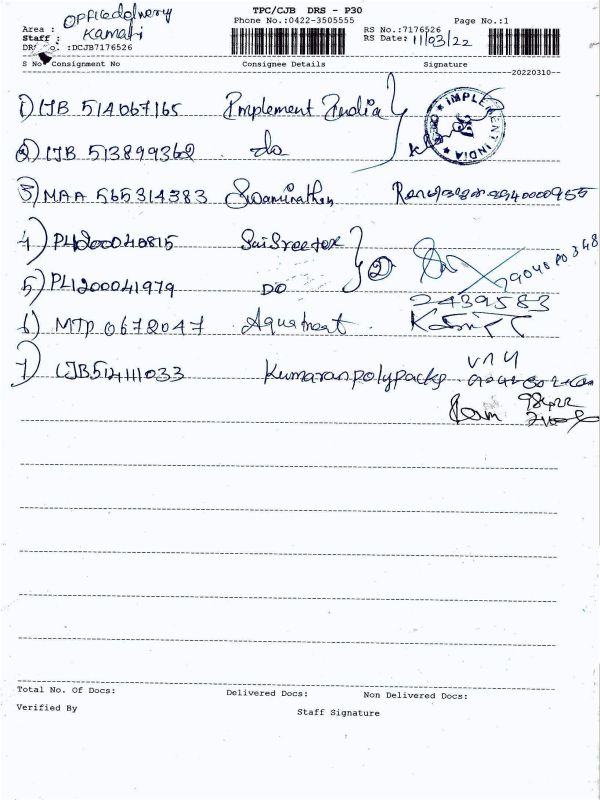 TPC/CJB DRS - P30
Phone No.:0422-3505555 Page No.:1
Area : Office delivery
Staff : Kamatri
RS No.:7176526
RS Date: 11/03/22
DRS No. :DCJB7176526
S No Consignment No Consignee Details Signature
--20220310--
1) CJB 514067165 Implement India
IMPLEMENT INDIA
2) CJB 513899362 do
3) MAA 565314383 Swaminathan
4) PLI200040815 Sai Sreetex
2
5) PLI200041979 DO
2439583
6) MTP 0672047 Aquatreat.
7) CJB514111033 Kumaranpolypacks
Ram
Total No. Of Docs: Delivered Docs: Non Delivered Docs:
Verified By Staff Signature